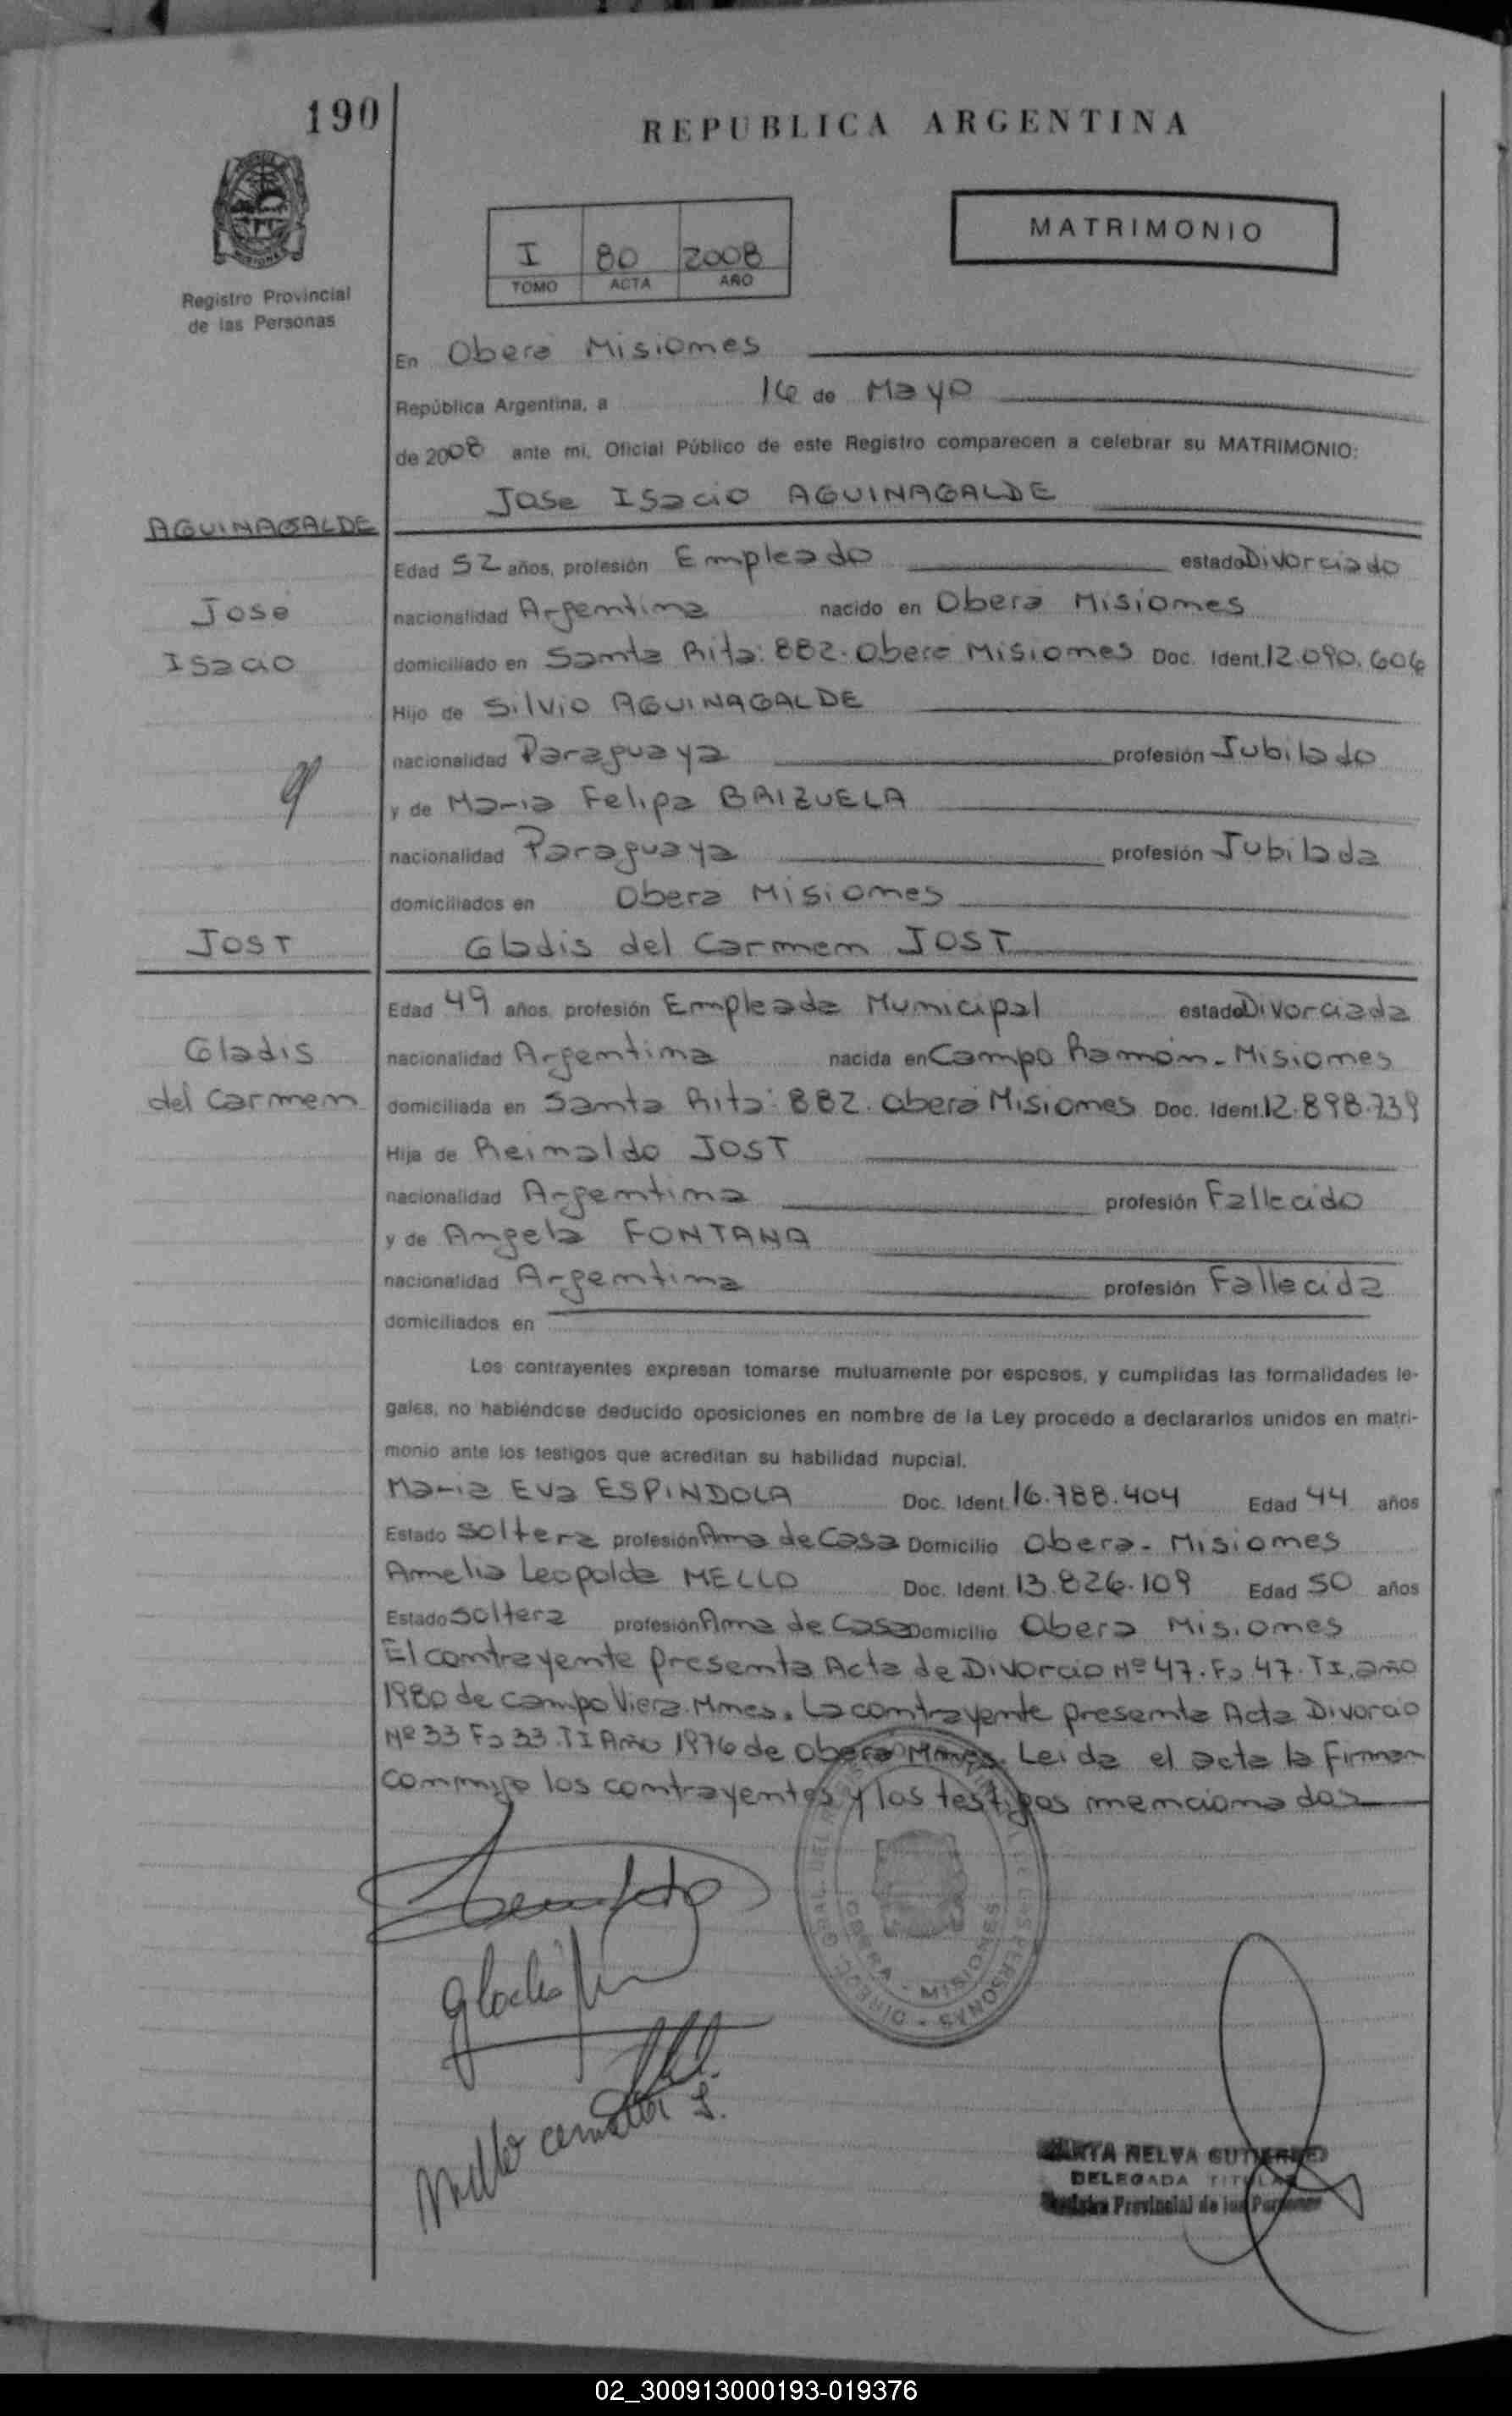 190
REPUBLICA ARGENTINA
MATRIMONIO
I 80 2008
TOMO ACTA AÑO
Registro Provincial
de las Personas
En Obera Misiones
República Argentina, a 16 de Mayo
de 2008 ante mi, Oficial Público de este Registro comparecen a celebrar su MATRIMONIO:
Jose Isacio AGUINAGALDE
AGUINAGALDE
Edad 52 años, profesión Empleado estado Divorciado
Jose
nacionalidad Argentina nacido en Obera Misiones
Isacio
domiciliado en Santa Rita: 882. Obera Misiones Doc. Ident. 12.090.606
Hijo de Silvio AGUINAGALDE
nacionalidad Paraguaya profesión Jubilado
y de Maria Felipa BRIZUELA
nacionalidad Paraguaya profesión Jubilada
domiciliados en Obera Misiones
JOST
Gladis del Carmen JOST
Edad 49 años, profesión Empleada Municipal estado Divorciada
Gladis
nacionalidad Argentina nacida en Campo Ramón - Misiones
del Carmen
domiciliada en Santa Rita: 882. Obera Misiones Doc. Ident. 12.898.739
Hija de Reinaldo JOST
nacionalidad Argentina profesión Fallecido
y de Angela FONTANA
nacionalidad Argentina profesión Fallecida
domiciliados en
Los contrayentes expresan tomarse mutuamente por esposos, y cumplidas las formalidades le-
gales, no habiéndose deducido oposiciones en nombre de la Ley procedo a declararlos unidos en matri-
monio ante los testigos que acreditan su habilidad nupcial.
Maria Eva ESPINDOLA Doc. Ident. 16.788.404 Edad 44 años
Estado Soltera profesión Ama de Casa Domicilio Obera - Misiones
Amelia Leopolda MELLO Doc. Ident. 13.826.109 Edad 50 años
Estado Soltera profesión Ama de Casa Domicilio Obera Misiones
El contrayente presenta Acta de Divorcio Nº 47. Fo 47. TI. año
1980 de Campo Viera. Mnes. La contrayente presenta Acta Divorcio
Nº 33 Fo 33. TI Año 1976 de Obera Mnes. Leida el acta la firman
conmigo los contrayentes y los testigos mencionados
OBERA - MISIONES
Gladis
Mello
MARTA NELVA GUTIERREZ
DELEGADA TITULAR
Registro Provincial de las Personas
02_300913000193-019376